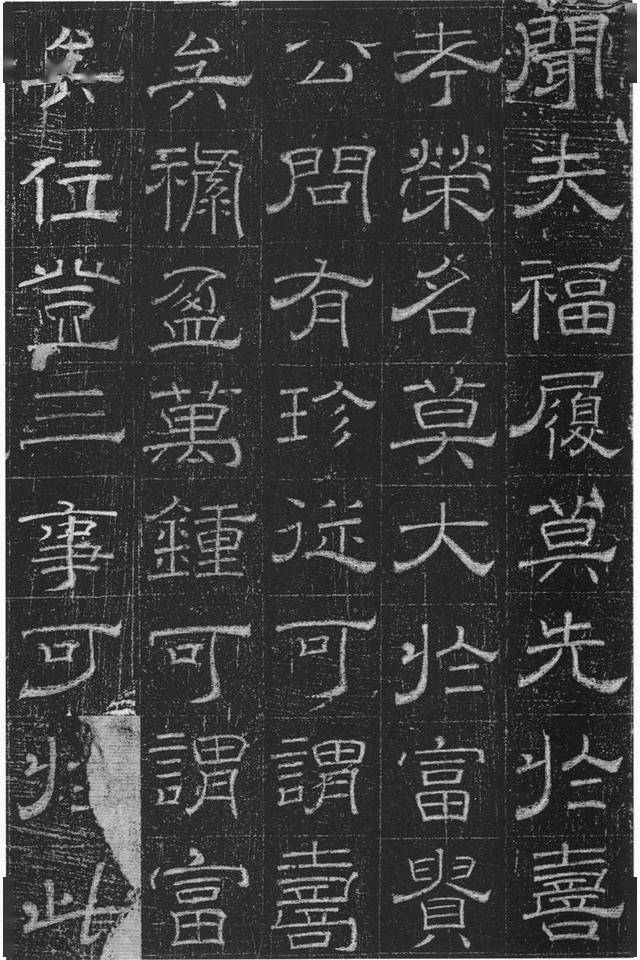 聞夫福履莫先於壽
考榮名莫大於富貴
公問有珍從可謂壽
矣祿盈萬鍾可謂富
矣位登三事可於此